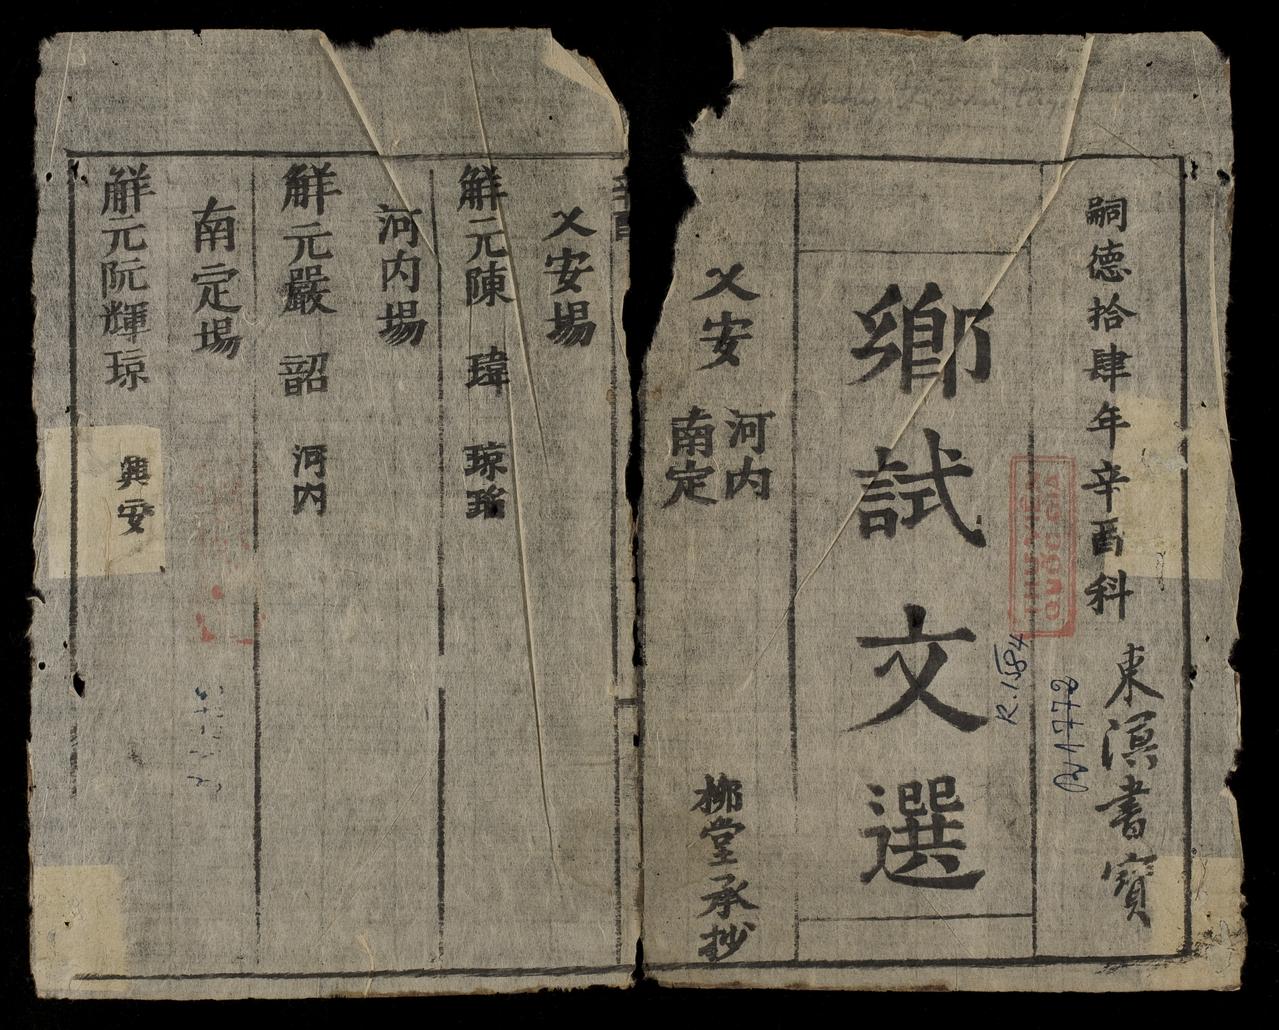 嗣德拾肆年辛酉科
東溟書寶
鄉試文選
乂安
河内
南定
柳堂承抄
R.1584
乂安場
解元陳 瑋 瓊瑠
河内場
解元嚴 韶 河内
南定場
解元阮輝琼 興安